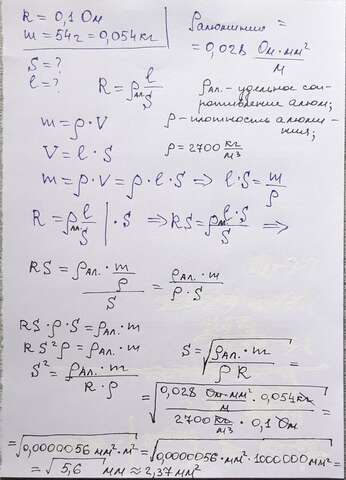 R = 0,1 Ом
m = 54г = 0,054кг
S = ?
l = ?
R = ρ ал. l/S
ρ алюминия =
= 0,028 Ом·мм²/м
ρ ал. - удельное соп-
ротивление алюм;
ρ - плотность алюми-
ния;
ρ = 2700 кг/м³
m = ρ · V
V = l · S
m = ρ · V = ρ · l · S ⇒ l · S = m/ρ
R = ρ ал. l/S | · S ⇒ RS = ρ ал. l · S/S ⇒
RS = (ρ ал. · m/ρ)/S = ρ ал. · m/ρ · S
RS · ρ · S = ρ ал. · m
RS²ρ = ρ ал. · m
S² = ρ ал. · m/R · ρ
S = √(ρ ал. · m/ρ R) =
= √(0,028 Ом·мм²/м · 0,054кг/2700 кг/м³ · 0,1 Ом) =
= √(0,0000056 мм² · м²) = √(0,0000056 · мм² · 1000000 мм²) =
= √5,6 мм ≈ 2,37 мм²